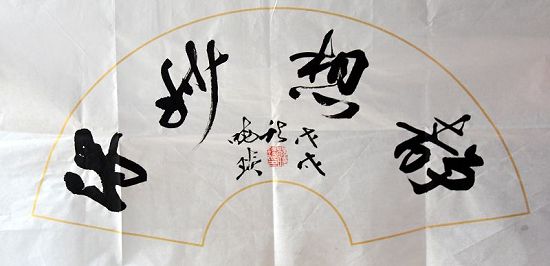 梦想成真
戊戌
秋